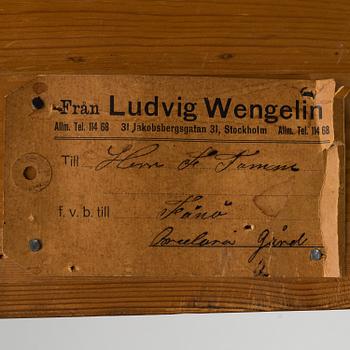 Från Ludvig Wengelin
Allm. Tel. 114 68 31 Jakobsbergsgatan 31, Stockholm Allm. Tel. 114 68
Till Herr F. Tamm
f. v. b. till Fånö
Gård